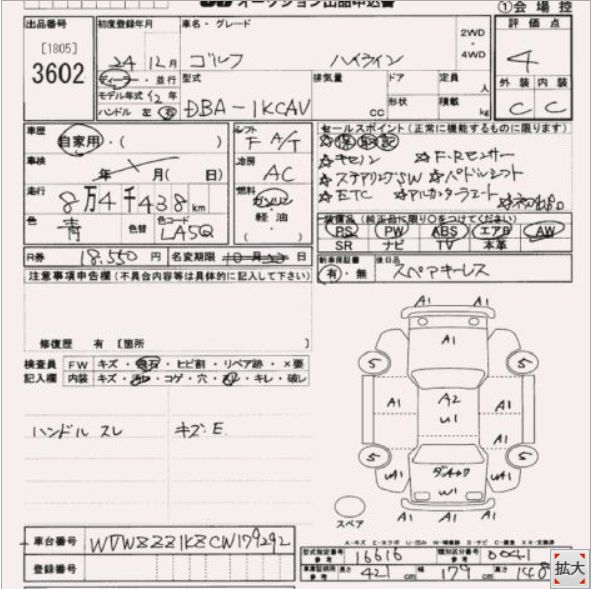 オークション出品申込書
①会場控
出品番号
[1805]
3602
初度登録年月
24年12月
車名・グレード
ゴルフ ハイライン
2WD・4WD
評価点
4
外装 内装
C C
ディーラー・並行
モデル年式12年
ハンドル 左 右
型式
DBA-1KCAV
排気量 cc
ドア
形状
定員 人
積載 kg
車歴
自家用・( )
車検 年 月( 日)
走行
8万4千438km
色 青
色替
色コード LA5Q
シフト
F A/T
冷房
AC
燃料
ガソリン
軽油
( )
セールスポイント(正常に機能するものに限ります)
☆キセノン ☆F・Rセンサー
☆ステアリングSW ☆パドルシフト
☆ETC ☆アルカンターラシート
装備品(純正品に限り○をつけてください)
PS PW ABS エアB AW
SR ナビ TV 本革
新車保証書
有・無
後日品
スペアキーレス
R券 18.550円
名変期限
注意事項申告欄(不具合内容等は具体的に記入して下さい)
修復歴 有 [箇所 ]
検査員記入欄
FW キズ・飛石・ヒビ割・リペア跡・×要
内装 キズ・汚れ・コゲ・穴・スレ・キレ・破れ
ハンドル スレ
キズ・E
A1
A1 A1
A1
5 5
A1 A2 A1
U1
A1
5 5
UA1 ダンキャク UA1
W1
A1 A1 A1
スペア
A-キズ E-エクボ U-凹み W-補修跡 S-サビ C-腐食 XX-交換済
車台番号 WVWZZZ1KZCW179292
登録番号
型式指定番号参考 16616
類別区分番号参考 0041
車庫証明用参考 長さ 421cm 幅 179cm 高さ 148
拡大